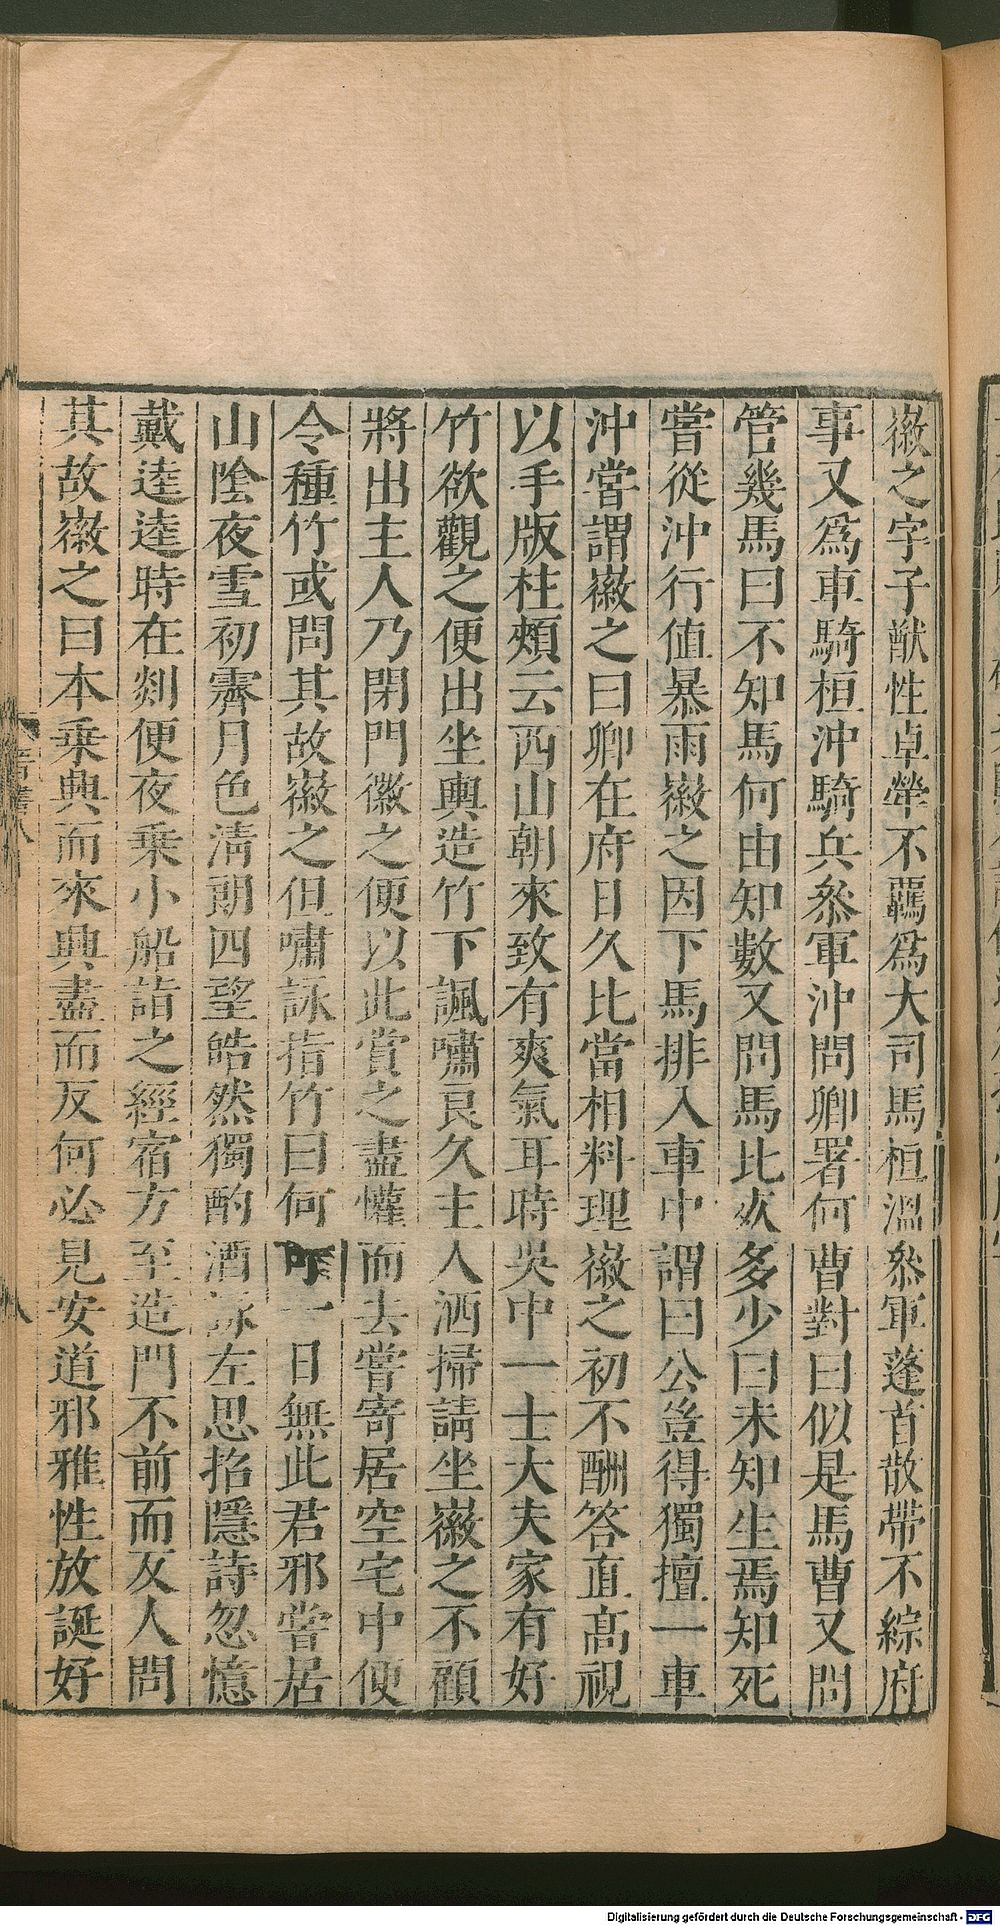 徽之字子猷性卓犖不羈爲大司馬桓溫叅軍蓬首散帶不綜府
事又爲車騎桓沖騎兵叅軍沖問卿署何曹對曰似是馬曹又問
管幾馬曰不知馬何由知數又問馬比𣦸多少曰未知生焉知死
嘗從沖行值暴雨徽之因下馬排入車中謂曰公豈得獨擅一車
沖嘗謂徽之曰卿在府日久比當相料理徽之初不酬答直高視
以手版柱頰云西山朝來致有爽氣耳時吳中一士大夫家有好
竹欲觀之便出坐輿造竹下諷嘯良久主人洒掃請坐徽之不顧
將出主人乃閉門徽之便以此賞之盡懽而去嘗寄居空宅中便
令種竹或問其故徽之但嘯詠指竹曰何可一日無此君邪嘗居
山陰夜雪初霽月色清朗四望皓然獨酌酒詠左思招隱詩忽憶
戴逵逵時在剡便夜乘小船詣之經宿方至造門不前而反人問
其故徽之曰本乗興而來興盡而反何必見安道邪雅性放誕好
Digitalisierung gefördert durch die Deutsche Forschungsgemeinschaft - DFG